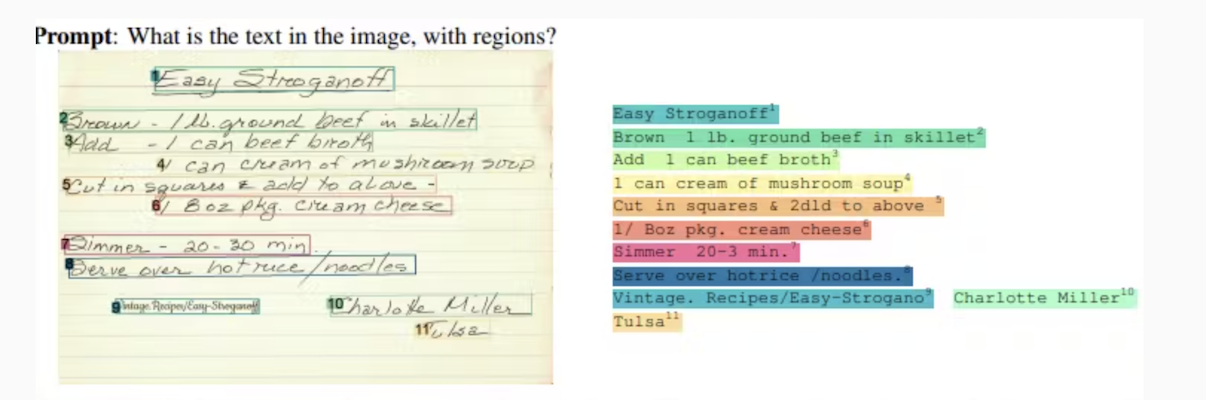 Prompt: What is the text in the image, with regions?
1 Easy Stroganoff
2 Brown - 1 lb. ground beef in skillet
3 Add - 1 can beef broth
4 1 can cream of mushroom soup
5 Cut in squares & add to above -
6 1 8 oz pkg. cream cheese
7 Simmer - 20-30 min.
8 Serve over hot rice/noodles
9 Vintage.Recipes/Easy-Stroganoff 10 Charlotte Miller
11 Tulsa
Easy Stroganoff1
Brown 1 lb. ground beef in skillet2
Add 1 can beef broth3
1 can cream of mushroom soup4
Cut in squares & 2d1d to above 5
1/ Boz pkg. cream cheese6
Simmer 20-3 min.7
Serve over hotrice /noodles.8
Vintage. Recipes/Easy-Strogano9 Charlotte Miller10
Tulsa11